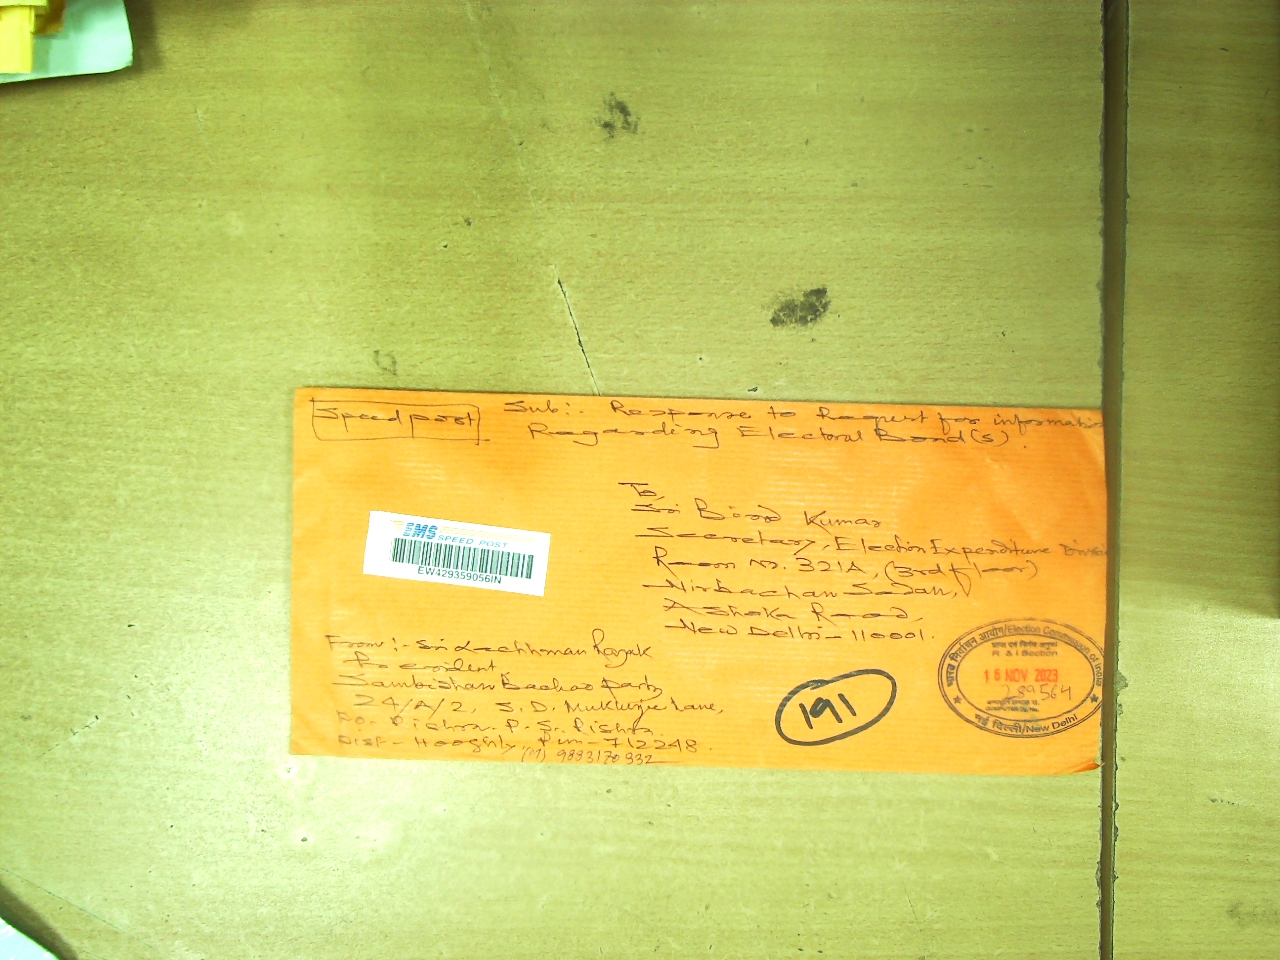 Speed post
Sub:- Response to Request for information
Regarding Electoral Bond(s).
To,
Sri Binod Kumar
Secretary, Election Expenditure
Room No. 321A, (3rd floor)
Nirbachan Sadan,
Ashoka Road,
New Delhi - 110001.
EMS
SPEED POST
EW429359056IN
From :- Sri Lachhman Rajak
President
Sambidhan Bachao Party
24/A/2, S.D. Mukherjee Lane,
PO- Rishra. P.S. Rishra.
Dist - Hooghly Pin - 712248.
(M) 9883170332
191
भारत निर्वाचन आयोग/Election Commission of India
R & I Section
16 NOV 2023
289564
नई दिल्ली/New Delhi